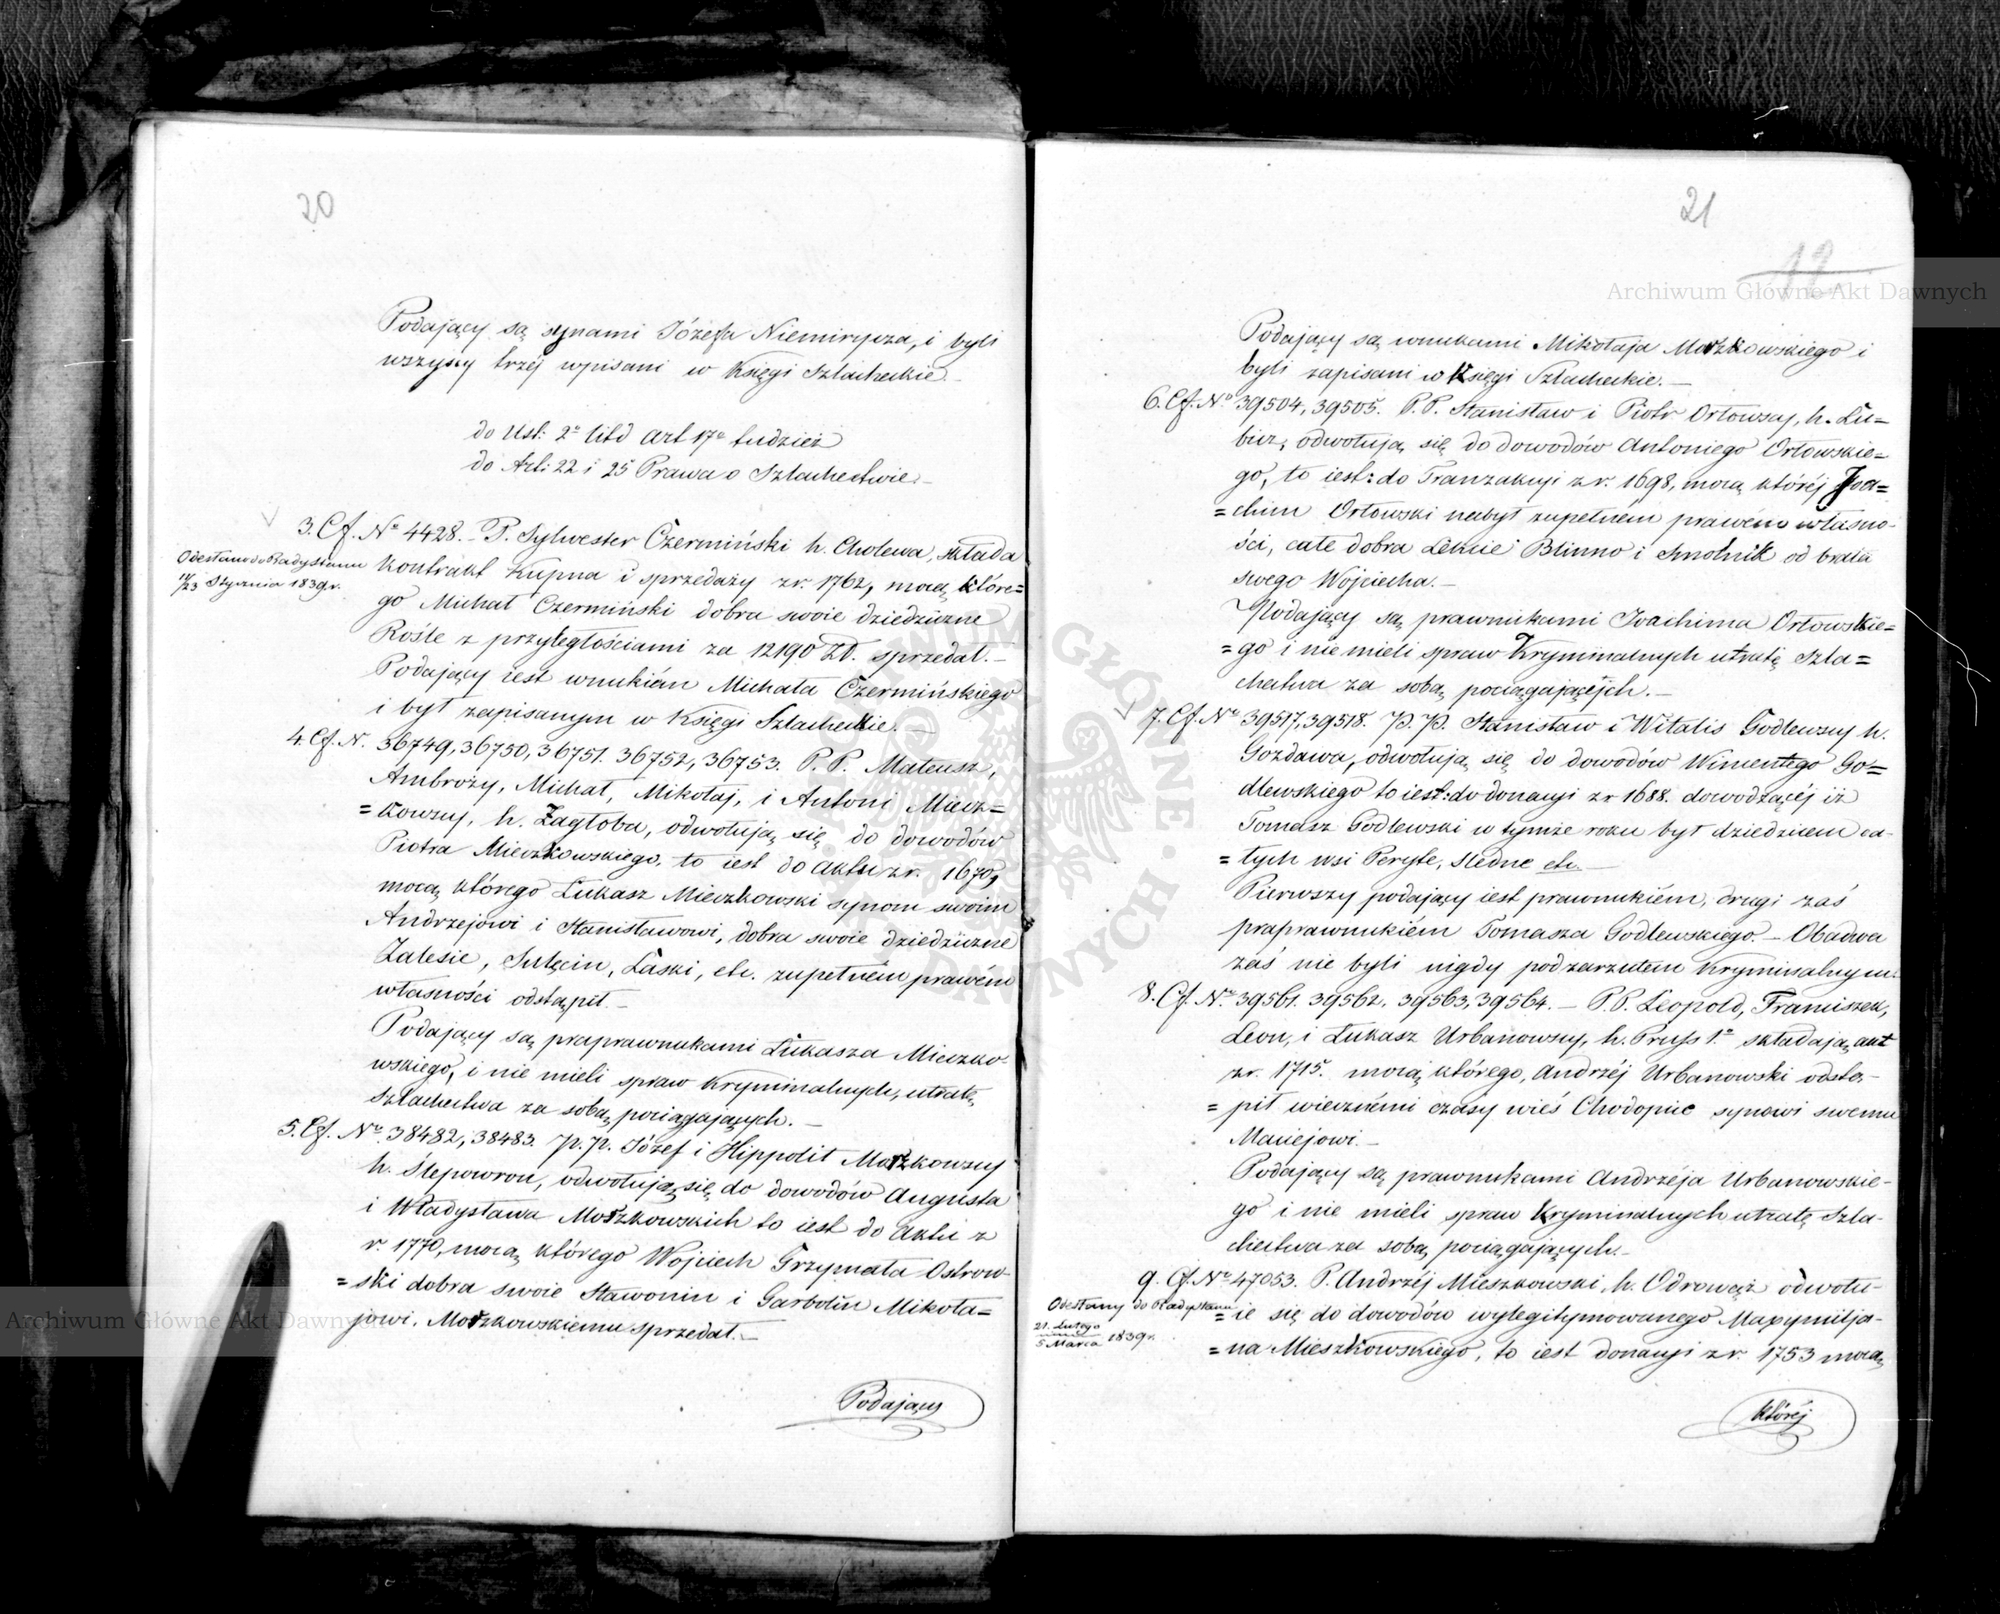 20
Podający są synami Józefa Niemirycza, i byli
wszyscy trzéj wpisani w Księgi Szlacheckie.
do Ust: 2º lit d art 17º tudzież
do Art: 22 i 25 Prawa o Szlachectwie.
3. Cf. Nº 4428. P. Sylwester Czermiński h. Cholewa, składa
Odesłano do Radystanu
11/23 Stycznia 1839 r.
kontrakt Kupna i sprzedaży z r. 1762, mocą które=
go Michał Czermiński dobra swoie dziedziczne
Rośle z przyległościami za 12190 Zł. sprzedał.
Podający iest wnukiém Michała Czermińskiego
i był zapisanym w Księgi Szlacheckie.
4. Cf. N. 36749, 36750, 36751. 36752, 36753. P. P. Mateusz,
Ambroży, Michał, Mikołaj, i Antoni Miecz=
=kowscy, h. Zagłoba, odwołują się do dowodów
Piotra Mieczkowskiego, to iest do aktu z r. 1670,
mocą którego Łukasz Mieczkowski synom swoim
Andrzejowi i Stanisławowi, dobra swoie dziedziczne
Zalesie, Sulęcin, Łaski, etc. zupełnem prawém
własności odstąpił.
Podający są praprawnukami Łukasza Mieczko-
wskiego, i nie mieli spraw kryminalnych, utratę
szlachectwa za sobą pociągających.
5. Cf. Nº 38482, 38483. P. P. Józef i HippolitМорzkowscy
h. Ślepowron, odwołują się do dowodów Augusta
i Władysława Morzkowskich to iest do Aktu z
r. 1770, mocą którego Wojciech Grzymała Ostrow-
=ski dobra swoie Stawonin i Garbolin Mikoła=
jowi, Morzkowskiemu sprzedał.
Podający
21
12
Podający są wnukami Mikołaja Morzkowskiego i
byli zapisani w Księgi Szlacheckie.
6. Cf. Nº 39504, 39505. P. P. Stanisław i Piotr Orłowscy, h. Lu=
bicz, odwołują się do dowodów Antoniego Orłowskie=
go, to iest: do Tranzakcyi z r. 1698, mocą któréj Joa=
=chim Orłowski nabył zupełném prawem własno-
ści, całe dobra Lekcie Blinno i Smolnik od brata
swego Wojciecha.
Podający są prawnukami Joachima Orłowskie=
=go i nie mieli spraw Kryminalnych utratę Szla=
chectwa za sobą pociągających.
7. Cf. Nº 39517, 39518. P. P. Stanisław i Witalis Godlewscy h.
Gozdawa, odwołują się do dowodów Wincentego Go=
dlewskiego to iest: do donacyi z r 1688. dowodzącéj iż
Tomasz Godlewski w tymże roku był dziedzicem ca-
=łych wsi Peryłe, Sledne etc.
Pierwszy podający iest prawnukiém, drugi zaś
praprawnukiém Tomasza Godlewskiego. Obadwa
zaś nie byli nigdy pod zarzutem Kryminalnym.
8. Cf. Nº 39561. 39562. 39563, 39564. P. P. Leopold, Franciszek,
Leon, i Łukasz Urbanowscy, h. Pruss 1º składają akt
z r. 1715. mocą którego, Andrzéj Urbanowski odstą-
=pił wiecznémi czasy wieś Chodopie synowi swemu
Maciejowi.
Podający są prawnukami Andrzéja Urbanowskie-
go i nie mieli spraw Kryminalnych utratę Szla-
chectwa za sobą pociągających.
9. Cf. Nº 47053. P. Andrzéj Mieszkowski, h. Odrowąż odwołu-
Odesłany do Radystanu
21. Lutego
5 Marca 1839 r.
=ie się do dowodów wylegitymowanego Maxymilja-
=na Mieszkowskiego, to iest donacyi z r. 1753 mocą
któréj
Archiwum Główne Akt Dawnych
Archiwum Główne Akt Dawnych
ARCHIWUM GŁÓWNE AKT DAWNYCH